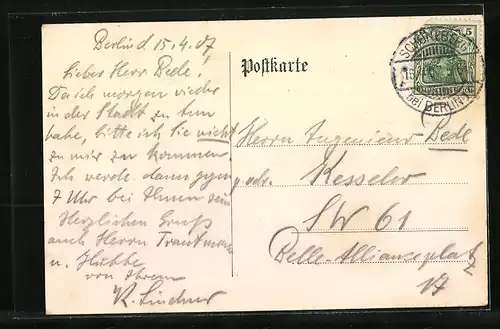 Berlin d. 15.4.07
Lieber Herr Bede!
Da ich morgen wieder
in der Stadt zu tun
habe, bitte ich Sie nicht
zu mir zu kommen
Ich werde dann gegen
7 Uhr bei Ihnen sein
Herzlichen Gruß
auch Herrn
u.
von Ihrem
R. Lindner
Postkarte
5
SCHÖNEBERG
(BEI BERLIN)
Herrn Ingenieur Bede
p. adr. Kesseler
SW 61
Belle-Allianceplatz